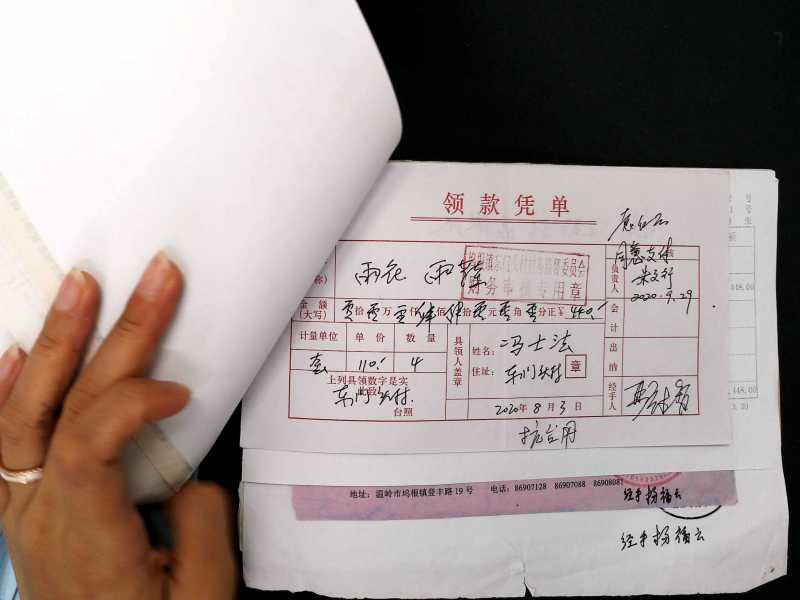 领款凭单
同意支付
称）
雨衣 雨鞋
坞根镇东门头村村务监督委员会
财务审核专用章
负责人
2020.9.29
金额（大写） 拾 万 仟 佰 拾 元 角 分正￥440.
会计
计量单位 单价 数量
套 110. 4
具领人盖章
姓名：冯士法
住址：东门头村
章
出纳
上列具领数字是实
此致
东门头村
台照
2020年8月3日
经手人
抗台用
地址：温岭市坞根镇登丰路19号 电话：86907128 86907088 86908081
经手 杨福云
经手 杨福云
号
号
张
额
448.00
448.00